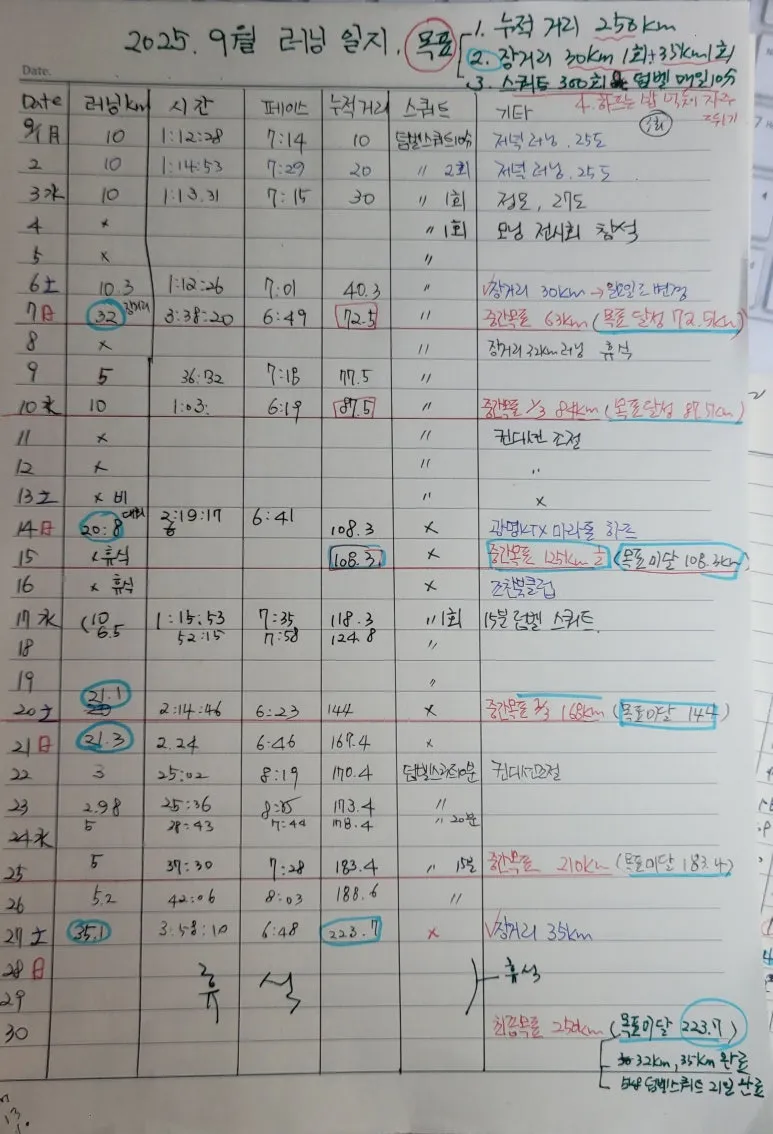 2025. 9월 러닝 일지. 목표
1. 누적 거리 250km
2. 장거리 30km 1회 + 35km 1회
3. 스쿼트 300회 덤벨 매일 10分
4. 하프는 밥 먹듯이 자주
1회
Date.
Date 러닝km 시간 페이스 누적거리 스쿼트 기타
9/1月 10 1:12:28 7:14 10 덤벨스쿼트10分 저녁 러닝. 25도
2 10 1:14:53 7:29 20 〃 2회 저녁 러닝. 25도
3水 10 1:13.31 7:15 30 〃 1회 정모, 27도
4 × 〃 1회 모닝 전시회 참석
5 × 〃
6土 10.3 1:12:26 7:01 40.3 〃 √장거리 30km → 일요일로 변경
7日 32 장거리 3:38:20 6:49 72.5 〃 중간목표 63km (목표 달성 72.5km)
8 × 〃 장거리 32km 러닝 휴식
9 5 36:32 7:18 77.5 〃
10水 10 1:03: 6:19 87.5 〃 중간목표 1/3 84km (목표달성 87.5km)
11 × 〃 컨디션 조절
12 × 〃 〃
13土 × 비 〃 ×
14日 20:8 대회 2:19:17 6:41 108.3 × 광명KTX 마라톤 하프
15 × 휴식 108.3 × 중간목표 125km (목표미달 108.3km)
16 × 휴식 × 조찬북클럽
17水 (10 1:15:53 7:35 118.3 〃 1회 15분 덤벨 스쿼트
6.5 52:15 7:58 124.8
18 〃
19 〃
20土 21.1 2:14:46 6:23 144 × 중간목표 2/3 168km (목표미달 144)
21日 21.3 2.24 6:46 167.4 ×
22 3 25:02 8:19 170.4 덤벨스쿼트10분 컨디션조절
23 2.98 25:36 173.4 〃
24水 5 28:43 7:44 178.4 〃 20분
25 5 37:30 7:28 183.4 〃 15분 중간목표 210km (목표미달 183.4)
26 5.2 42:06 8:03 188.6 〃
27土 35.1 3:58:10 6:48 223.7 × √장거리 35km
28日 휴 식 휴식
29
30 최종목표 250km (목표미달 223.7)
32km, 35km 완료
덤벨스쿼트 21일 완료